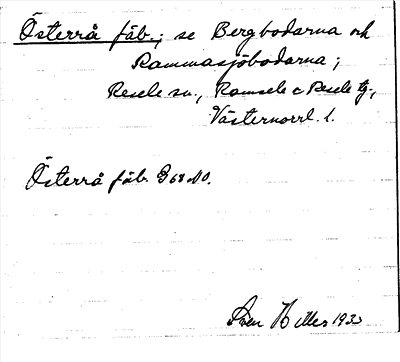 Österrå fäb.; se Bergbodarna och
Rammasjöbodarna;
Resele sn., Ramsele o Resele tg.,
Västernorrl. l.
Österrå fäb. G 68 NO.
Hilles 193